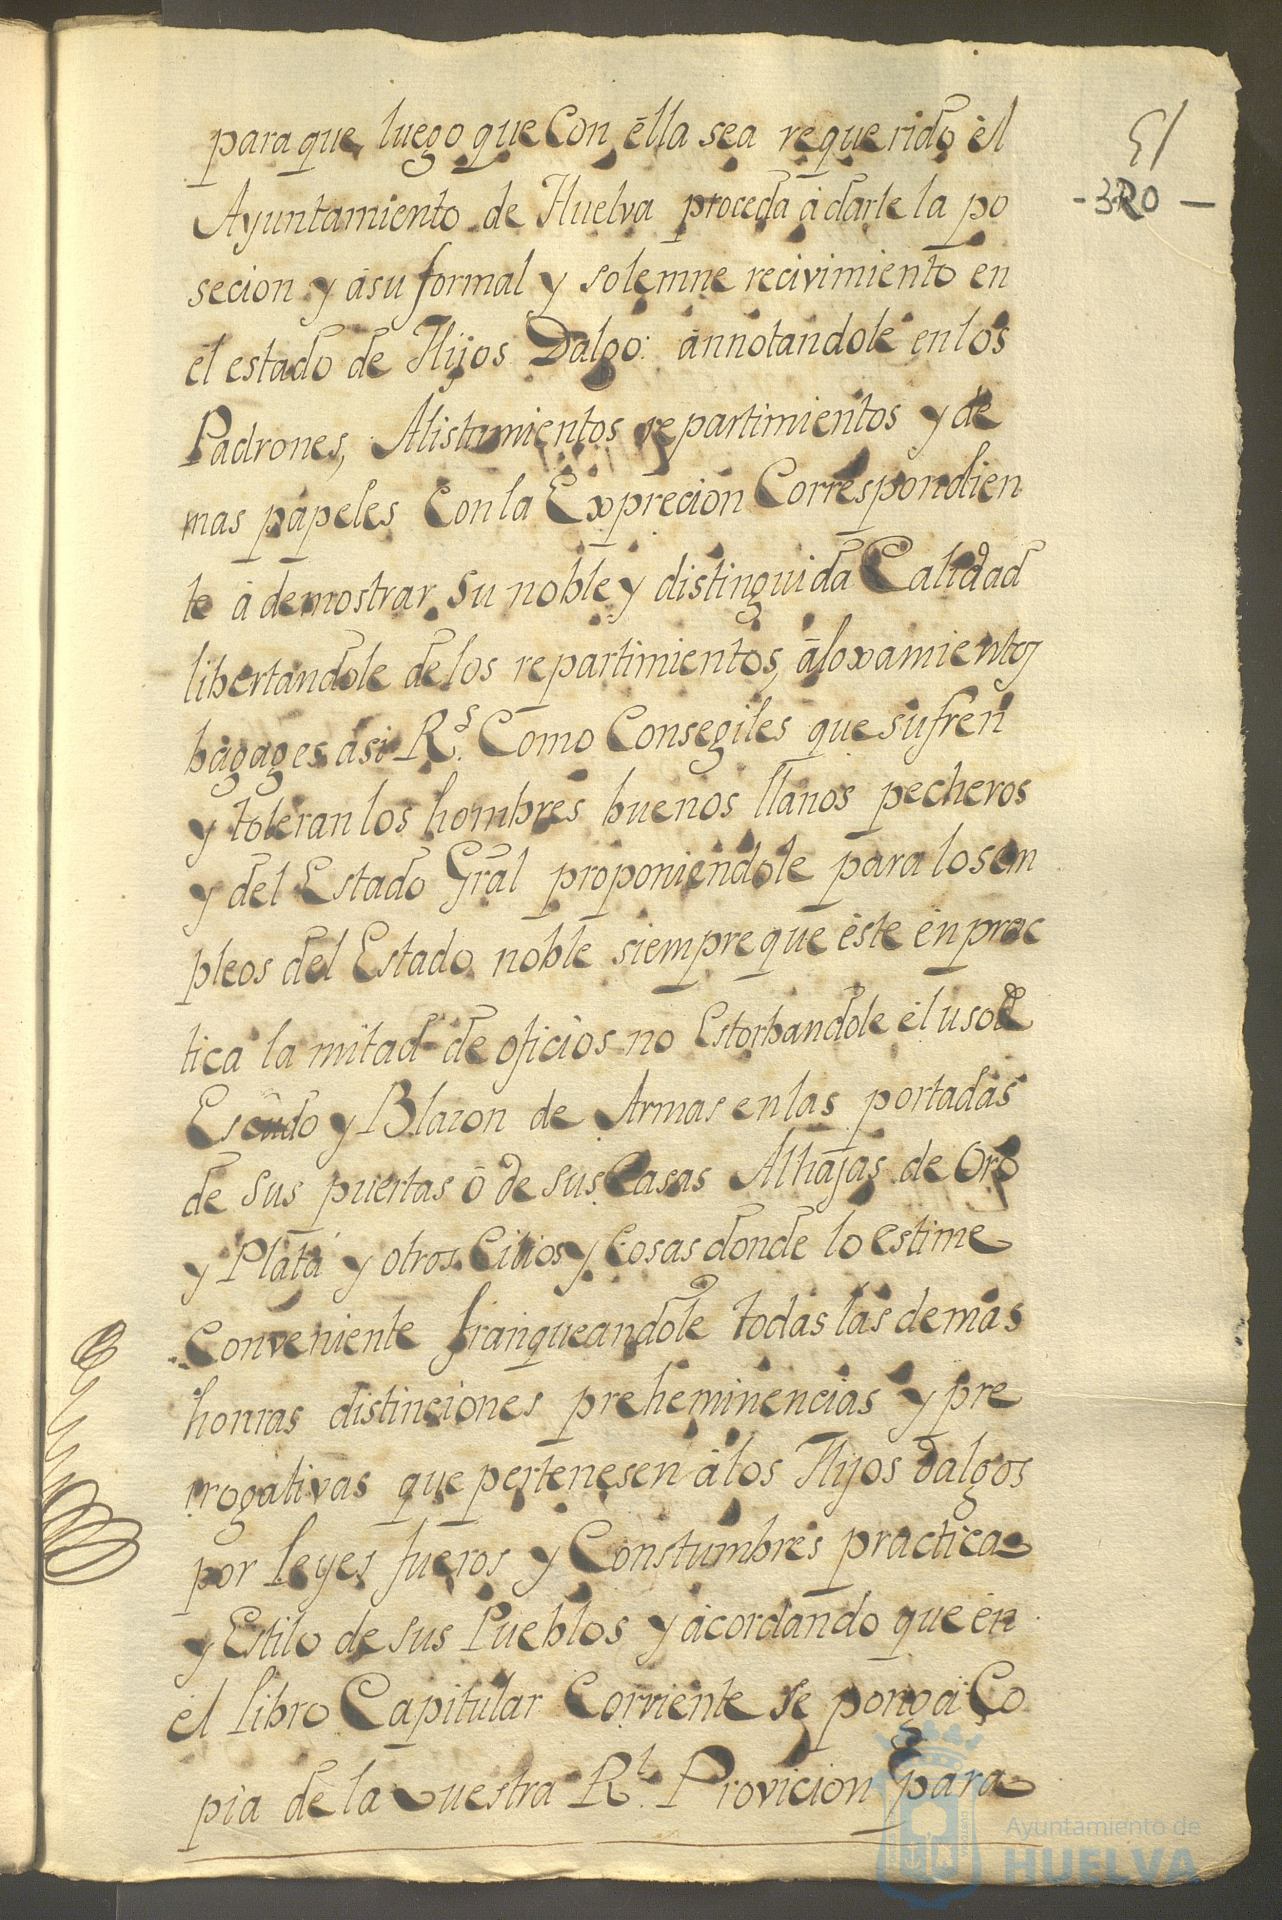 para que, luego que Con ella sea requerido èl
Ayuntamiento de Huelva proceda à darle la po
secion y àsu formal y solemne recivimiento en
èl estado de Hijos Dalgo: ànnotandole en los
Padrones, Alistamientos repartimientos y de
mas papeles Con la Exprecion Correspondien
te à demostrar su noble y distinguida Calidad
libertandole de los repartimientos, àloxamientos
bagages asi R.s Como Consegiles que sufren
y toleran los hombres buenos llanos pecheros
y del Estado Gràl proponiendole para los em
pleos del Estado noble siempre que èste èn prac
tica la mitad de oficios no Estorbandole èl uso de
Escudo y Blazon de Armas en las portadas
de sus puertas ò de sus Casas Alhajas de Oro
y Plata y otros Citios y Cosas donde lo estime
Conveniente franqueandole todas las demas
honras distinciones preheminencias y pre
rrogativas que pertenesen àlos Hijos dalgos
por leyes fueros y Constumbres practicas
y Estilo de sus Pueblos y àcordando que èn
èl libro Capitular Corriente se ponga Co
pia de la vuestra R.l Provicion para
- 3RO -
Ayuntamiento de
HUELVA